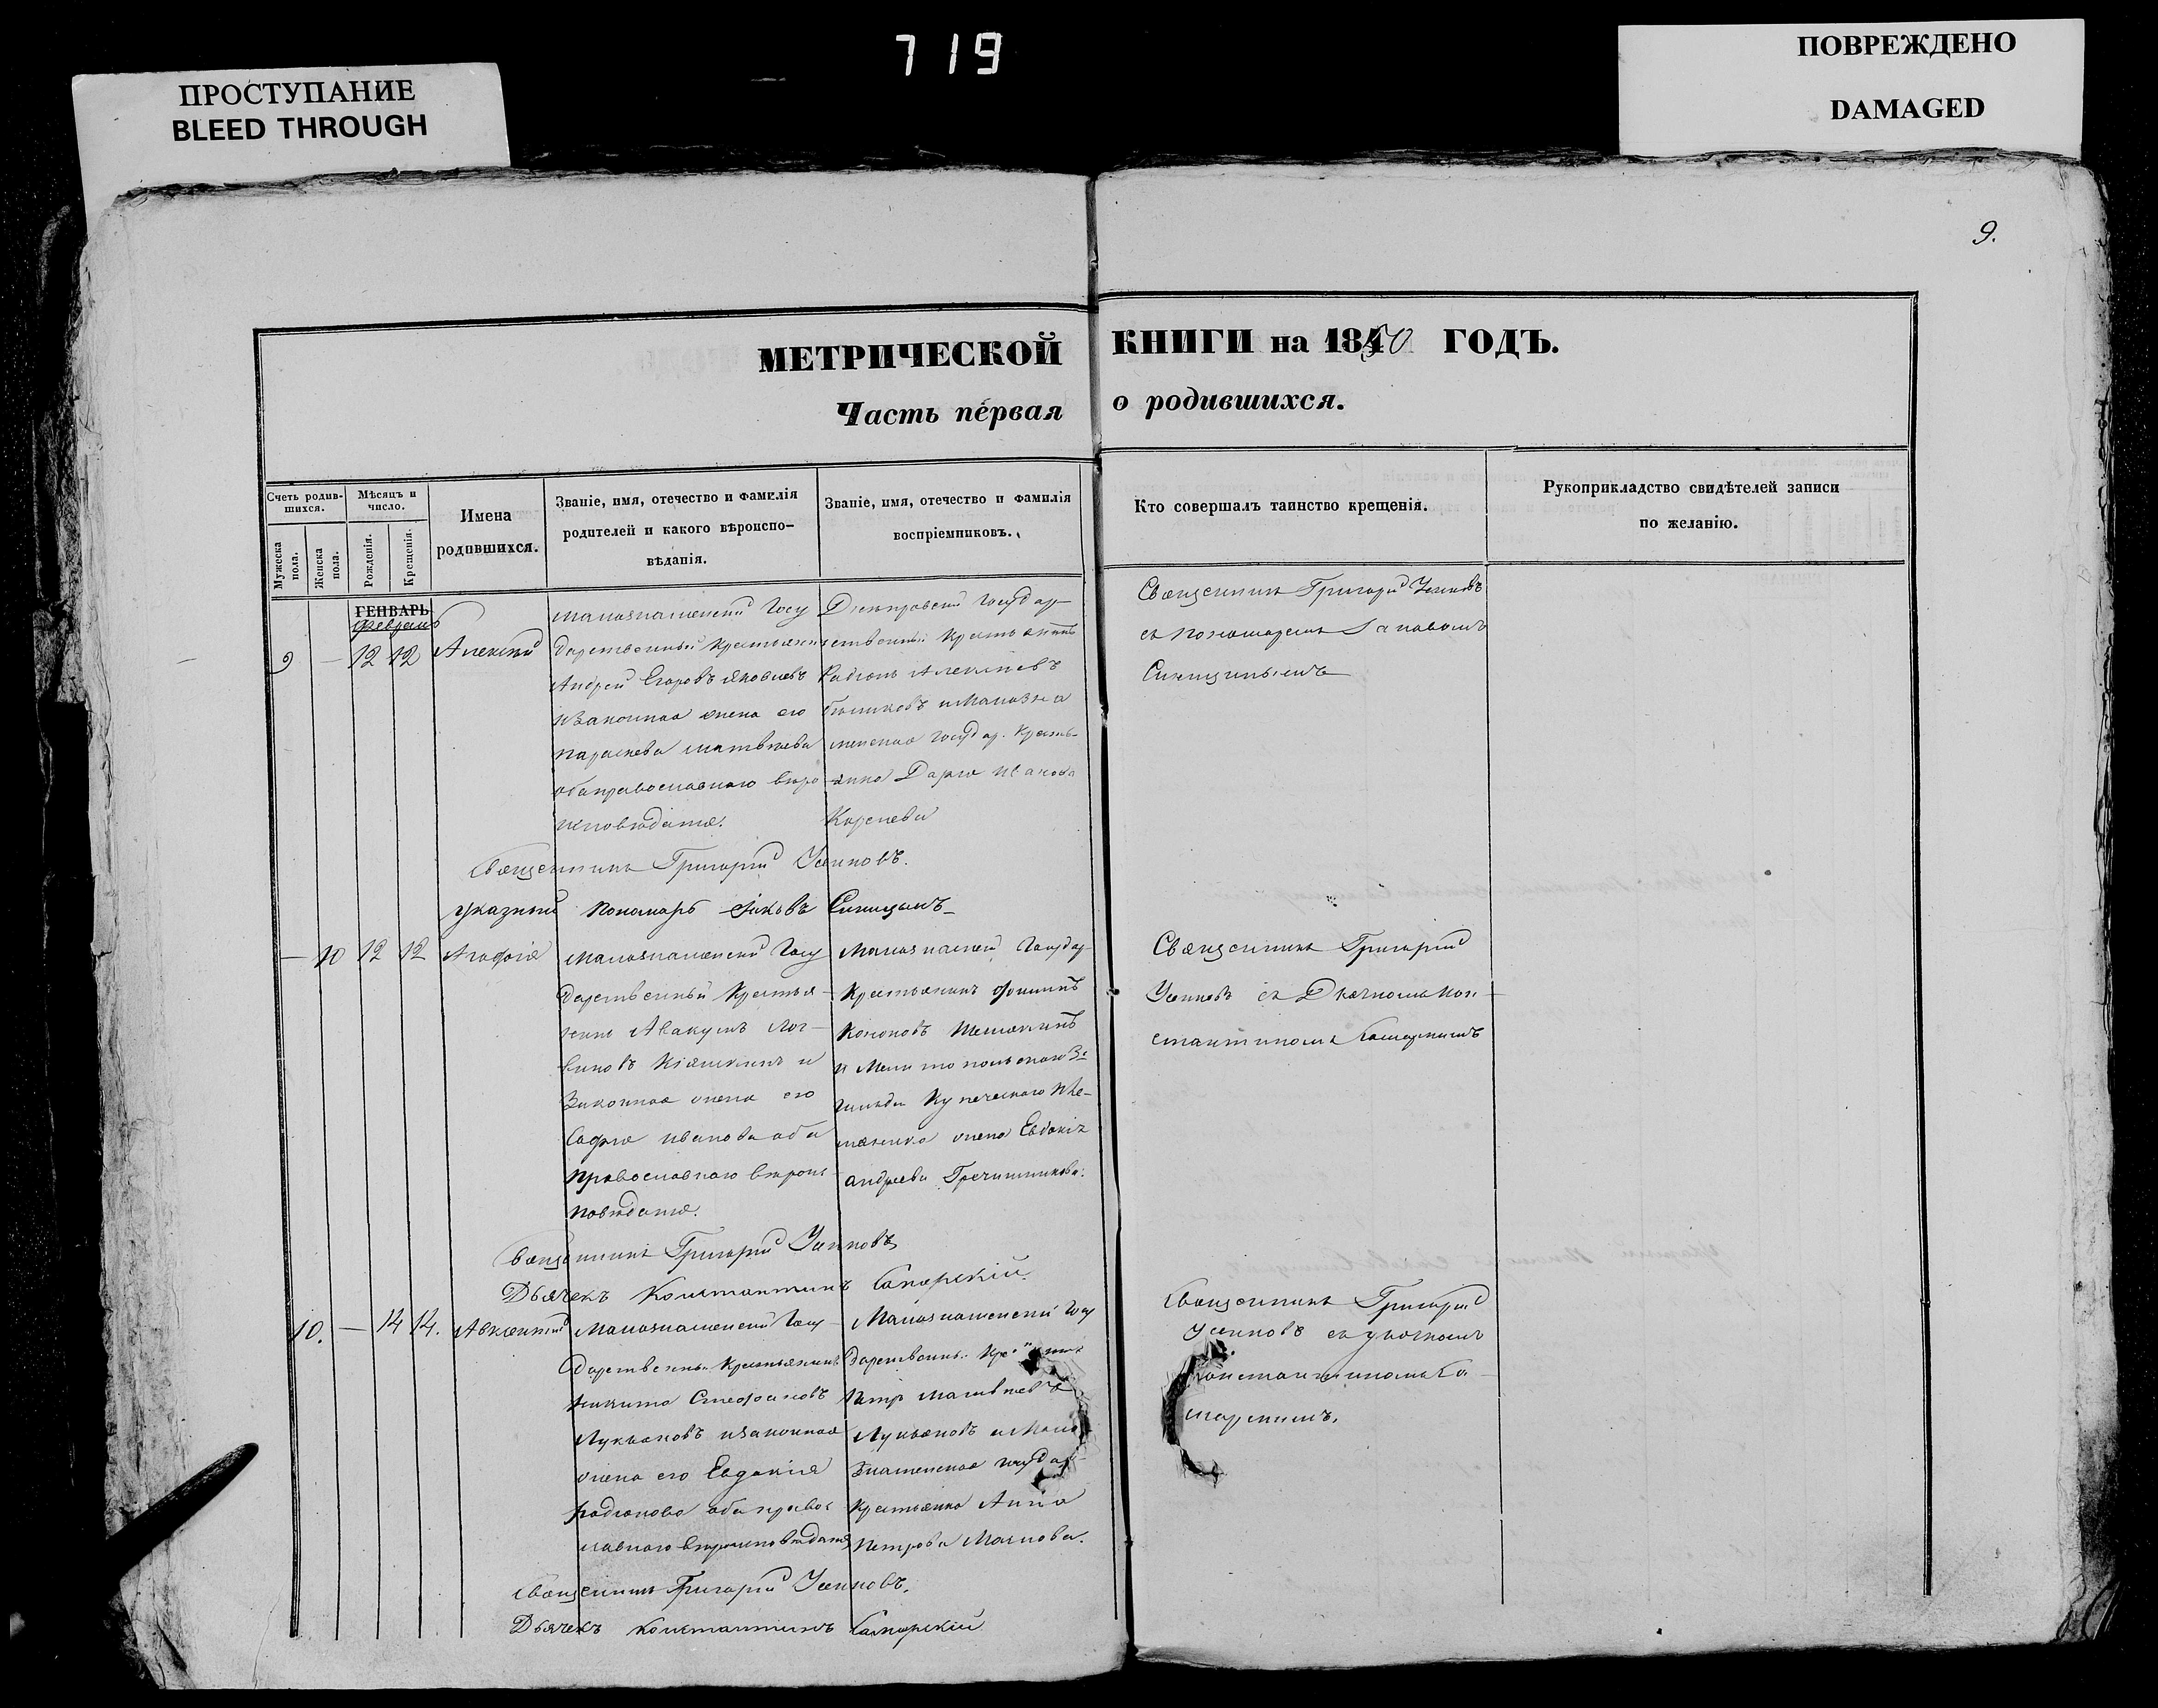 719
ПРОСТУПАНИЕ
BLEED THROUGH
ПОВРЕЖДЕНО
DAMAGED
9.
МЕТРИЧЕСКОЙ КНИГИ на 1850 ГОДЪ.
Часть первая о родившихся.
Счетъ родив-
шихся.
Мужеска пола.
Женска пола.
Мѣсяцъ и
число.
Рожденія.
Крещенія.
Имена
родившихся.
Званіе, имя, отечество и фамилія
родителей и какого вѣроиспо-
вѣданія.
Званіе, имя, отечество и фамилія
воспріемниковъ.
Кто совершалъ таинство крещенія.
Рукоприкладство свидѣтелей записи
по желанію.
ГЕНВАРЬ
Февраль
9 — 12 12 Алексій
Малознаменскій Госу
дарственный Крестьянинъ
Андрей Егоровъ Яковлевъ
и законная жена его
Параскева Матвѣева
оба православного вѣро
исповѣданія.
Днепровскій Государ-
ственный Крестьянинъ
Радіонъ Алексѣевъ
и Малозна
менская Государ. Кресть-
янка Дарья Иванова
Священникъ Григорій
съ пономаремъ
Синицынымъ
Священникъ Григорій
Указный Пономарь Яковъ Синицынъ
— 10 12 12 Агафія
Малознаменскій Госу
дарственный Крестья-
нинъ Авакумъ Лог-
виновъ и
Законная жена его
Софія Иванова оба
Православного вѣроис-
повѣданія.
Малознаменскій Государ-
Крестьянинъ
Кононовъ
и Мелитопольскаго 3й
гильдіи Купеческаго Пле-
мянника жена Евдокія
Андреева Гречишникова.
Священникъ Григорій
съ Дьячкомъ Кон-
стантиномъ
Священникъ Григорій
Дьячекъ Константинъ
10. — 14 14. Авксентій
Малознаменскій Госу-
дарственный Крестьянинъ
Никита Стефановъ
Лукьяновъ и законная
жена его Евдокія
Радіонова оба правос
лавного вѣроисповѣданія
Малознаменскій Госу
дарственный
Петръ Матвѣевъ
Лукьяновъ и Мало
знаменская Государ-
Крестьянка Анна
Петрова
Священникъ Григорій
съ дьячкомъ
Константиномъ
Священникъ Григорій
Дьячекъ Константинъ